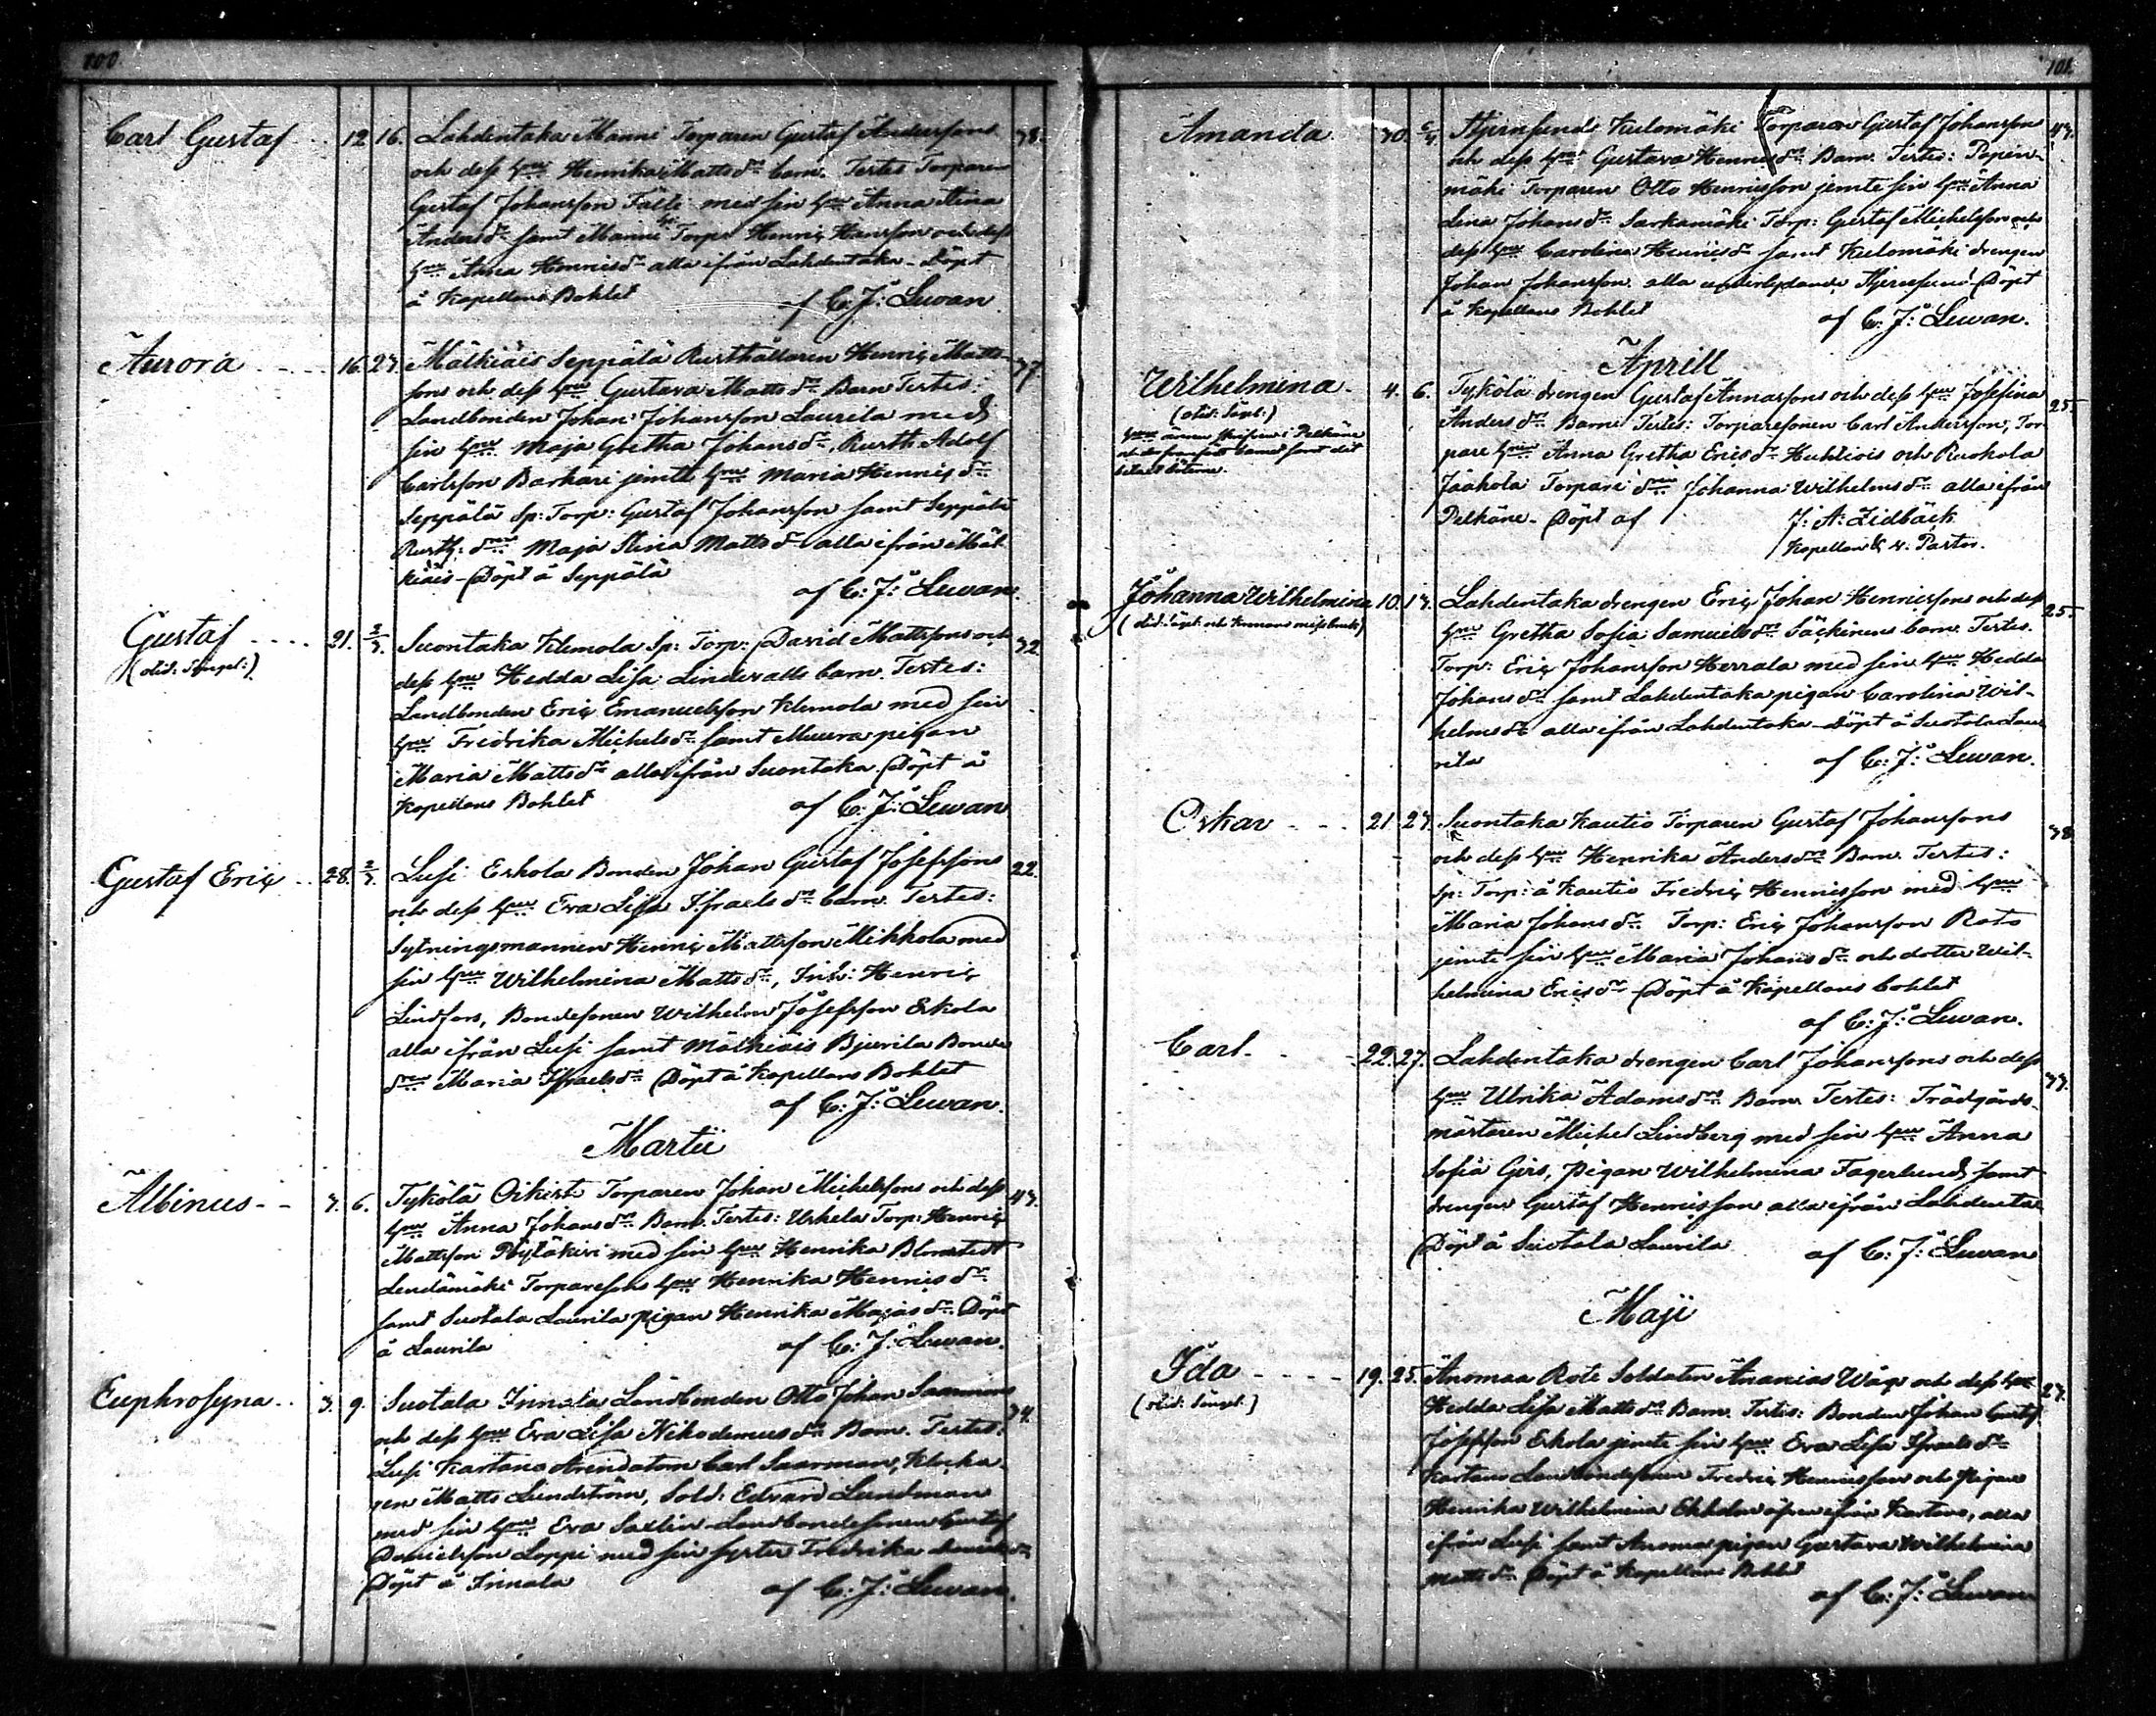 100
Carl Gustaf 12 16. Lahdentaka Manni Torparen Gustaf Anderssons 38.
och dess hu Henrika Matts dr barn. Testes Torparen
Gustaf Johansson Fälti med sin hu Anna Stina
Anders dr samt Manni Torp: Henric Hansson och dess
hu Anna Henrics dr alla ifrån Lahdentaka. Döpt
å Kapellans Bohlet af C: J: Lewan
Aurora 16. 23. Mälkiäis Seppälä Rusthållaren Henric Matts-
sons och dess hu Gustava Matts dr Barn Testes:
Landbonden Johan Johansson Laurila med
sin hu Maja Gretha Johans dr, Rusth. Adolf
Carlsson Barkari jemte hu Maria Henrics dr
Seppälä Sp: Torp: Gustaf Johansson samt Seppälä
Rusth: Maja Stina Matts dr alla ifrån Mäl-
kiäis. Döpt å Seppälä af C: J: Lewan.
Gustaf 21. 2/3. Suontaka Klemola Sp: Torp: David Mattssons och 32.
(död: Sängel:) dess hu Hedda Lisa Linderalls barn. Testes:
Landbonden Eric Emanuelsson Klemola med sin
hu Fredrika Michels dr samt Muura pigan
Maria Matts dr alla ifrån Suontaka. Döpt å
Kapellans Bohlet af C: J: Lewan
Gustaf Eric 28. 2/3. Lusi Erkola Bonden Johan Gustaf Josefssons 22.
och dess hu Eva Lisa Israels dr barn. Testes:
Sytningsmannen Henric Mattsson Mikkola med
sin hu Wilhelmina Matts dr, Inh: Henric
Lindfors, Bondesonen Wilhelm Josefsson Erkola
alla ifrån Lusi samt Mälkiäis Bjurila Bonde
Maria Israels dr Döpt å Kapellans Bohlet
af C: J: Lewan.
Martii
Albinus 3. 6. Tykölä Oikisto Torparen Johan Michelssons och dess 43.
hu Anna Johans dr Barn. Testes: Uskela Torp: Henric
Mattsson med sin hu Henrika Blomstedt
Lendämäki Torparesons hu Henrika Henrics dr
samt Suotala Laurila pigan Henrika Majas dr Döpt
å Laurila af C: J: Lewan.
Euphrosyna 3. 9. Suotala Innala Landbonden Otto Johan Saarmans 34.
och dess hu Eva Lisa Nikodemus dr Barn. Testes:
Lusi Kartano Arendatorn Carl Saarman, Klocka-
ren Matts Lundström, Sold: Edvard Lundman
med sin hu Eva Saxlin Landbondesonen Gustaf
Danielsson Loppi med sin syster Fredrika Daniels dr
Döpt å Innala af C: J: Lewan.
101.
Amanda 30. 6/4. Stjernsunds Kulomäki Torparen Gustaf Johansson 43.
och dess hu Gustava Henrics dr Barn. Testes: Papin-
mäki Torparen Otto Henricsson jemte sin hu Anna
Lina Johans dr Sarkamäki Torp: Gustaf Michelsson och
dess hu Carolina Henrics dr samt Kulomäki drengen
Johan Johansson. alla underlydande Stjernsund Döpt
å Kapellans Bohlet af C: J: Lewan.
Aprill
Wilhelmina 4. 6. Tykölä drengen Gustaf Annassons och dess hu Josefina 25.
(död: Sängl:) Anders dr Barn Testes: Torparesonen Carl Andersson, Tor-
pare hu Anna Gretha Erics dr Huhtiois och Ruokola
Jaakola Torpare Johanna Wilhelms dr alla ifrån
Pelkäne. Döpt af J: A: Lidbäck
Kapellan & v. Pastor.
Johanna Wilhelmina 10. 13. Lahdentaka drengen Eric Johan Henricssons och dess 25.
hu Gretha Sofia Samuels dr Säckinens barn Testes.
Torp: Eric Johansson Herrala med sin hu Hedda
Johans dr samt Lahdentaka pigan Carolina Wil-
helms dr alla ifrån Lahdentaka Döpt å Suotala Lau-
rila af C: J: Lewan.
Oskar 21 23. Suontaka Kautio Torparen Gustaf Johanssons 38.
och dess hu Henrika Anders dr Barn. Testes:
Sp: Torp: å Kautio Fredric Henricsson med hu
Maria Johans dr Torp: Eric Johansson Rats
jemte sin hu Maria Johans dr och dotter Wil-
helmina Erics dr Döpt å Kapellans bohlet
af C: J: Lewan.
Carl 22. 27. Lahdentaka drengen Carl Johanssons och dess 33.
hu Ulrika Adams dr Barn. Testes: Trädgårds-
mästaren Michel Lindberg med sin hu Anna
Sofia Girs, Pigan Wilhelmina Fagerlund, samt
drengen Gustaf Henricsson alla ifrån Lahdentaka
Döpt å Suotala Laurila af C: J: Lewan
Maji
Ida 19. 25. Anomaa Rote Soldaten Ananias Wåg och dess hu 23.
(död: Sängel.) Hedda Lisa Matts dr Barn. Testes: Bonden Johan Gustaf
Josefsson Erkola jemte sin hu Eva Lisa Israels dr
Kartano Landbondesonen Fredric Henricsson och Pigan
Henrika Wilhelmina Ekholm äfven ifrån Kartano, alla
ifrån Lusi samt Anomaa pigan Gustava Wilhelmina
Matts dr Döpt å Kapellans Bohlet
af C: J: Lewan